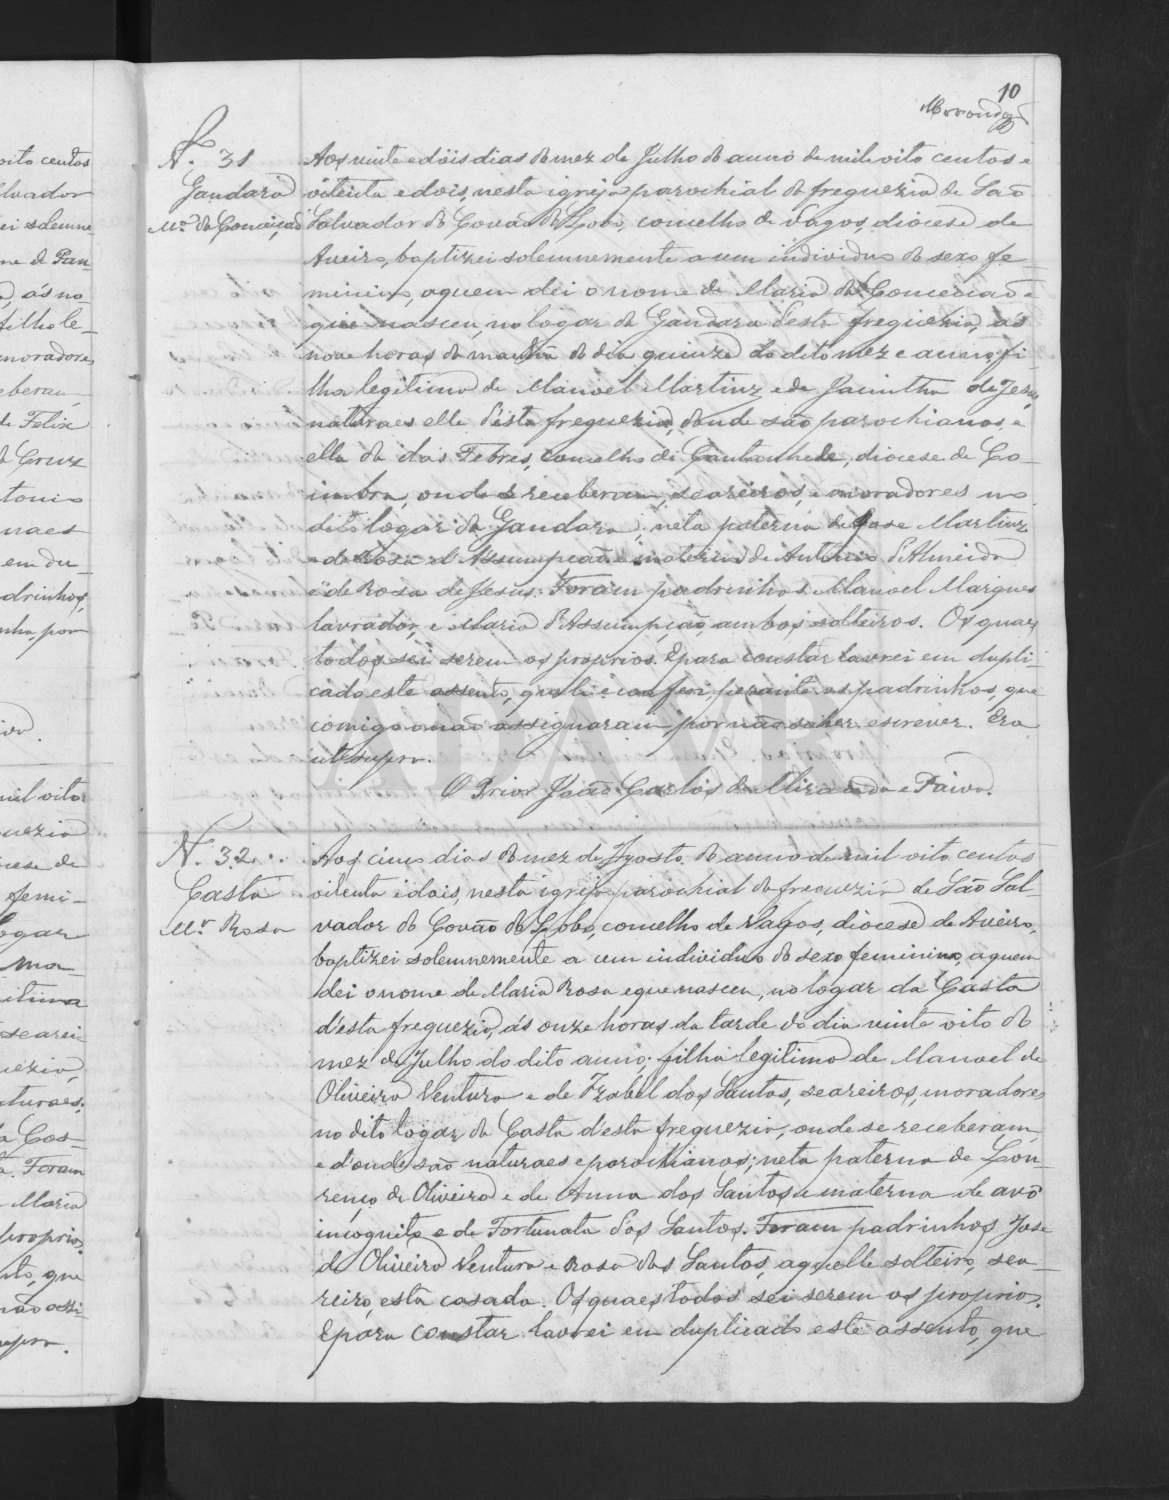 10
N. 31
Gandara
Mª da Conceição
Aos vinte e dois dias do mez de Julho do anno de mil oito centos e
oitenta e dois, nesta igreja parochial da freguezia de São
Salvador do Covão do Lobo, concelho de Vagos, diocese de
Aveiro, baptizei solemnemente a um individuo do sexo fe-
minino, a quem dei o nome de Maria da Conceicão e
que nasceu, no logar da Gandara d'esta freguezia, ás
nove horas da manhã do dia quinze do dito mez e anno, fi-
lha legitima de Manoel Martins e de Jacintha de Jesus,
naturaes elle d'esta freguezia, donde são parochianos, e
ella da das Febres, concelho de Cantanhede, diocese de Co-
imbra, onde se receberam, seareiros, e moradores no
dito logar da Gandara; neta paterna de Jose Martins
e de Rosa d'Assumpcão e materna de Antonio d'Almeida
e de Rosa de Jesus. Foram padrinhos Manoel Marques
lavrador, e Maria d'Assumpção, ambos solteiros. Os quaes
todos sei serem os proprios. E para constar lavrei em dupli-
cado este assento, que li e conferi perante os padrinhos, que
comigo o não assignaram, por não saber escrever. Era
ut supra.
O Prior João Carlos de Miranda e Paiva.
N. 32
Casta
Mª Rosa
Aos cinco dias do mez de Agosto do anno de mil oito centos
oitenta e dois, nesta igreja parochial da freguezia de São Sal-
vador do Covão do Lobo, concelho de Vagos, diocese de Aveiro,
baptizei solemnemente a um individuo do sexo feminino, a quem
dei o nome de Maria Rosa e que nasceu, no logar da Casta
d'esta freguezia, ás onze horas da tarde do dia vinte oito do
mez de Julho do dito anno; filha legitima de Manoel de
Oliveira Ventura e de Izabel dos Santos, seareiros, moradores
no dito logar da Casta d'esta freguezia, onde se receberam,
e d'onde são naturaes e parochianos; neta paterna de Lou-
renço de Oliveira e de Anna dos Santos e materna de avô
incognito e de Fortunata dos Santos. Foram padrinhos Jose
de Oliveira Ventura e Rosa dos Santos, aquelle solteiro, sea-
reiro, esta casada. Os quaes todos sei serem os proprios.
E para constar lavrei em duplicado este assento, que